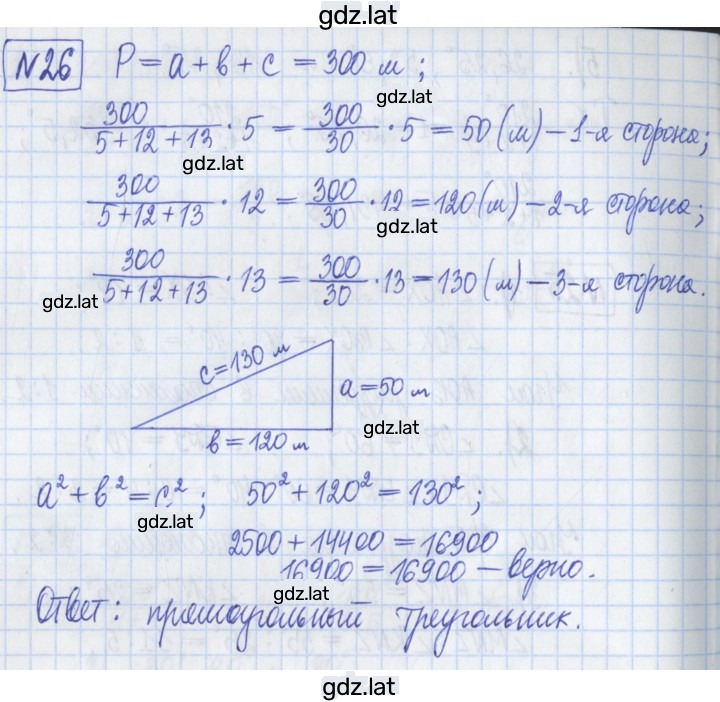 gdz.lat
№26 P = a + b + c = 300 м ;
gdz.lat
300/(5+12+13) · 5 = 300/30 · 5 = 50 (м) – 1-я сторона;
gdz.lat
300/(5+12+13) · 12 = 300/30 · 12 = 120 (м) – 2-я сторона;
gdz.lat
300/(5+12+13) · 13 = 300/30 · 13 = 130 (м) – 3-я сторона.
gdz.lat
c = 130 м
a = 50 м
gdz.lat
b = 120 м
a² + b² = c² ; 50² + 120² = 130² ;
gdz.lat
2500 + 14400 = 16900
16900 = 16900 – верно.
gdz.lat
Ответ: прямоугольный треугольник.
gdz.lat